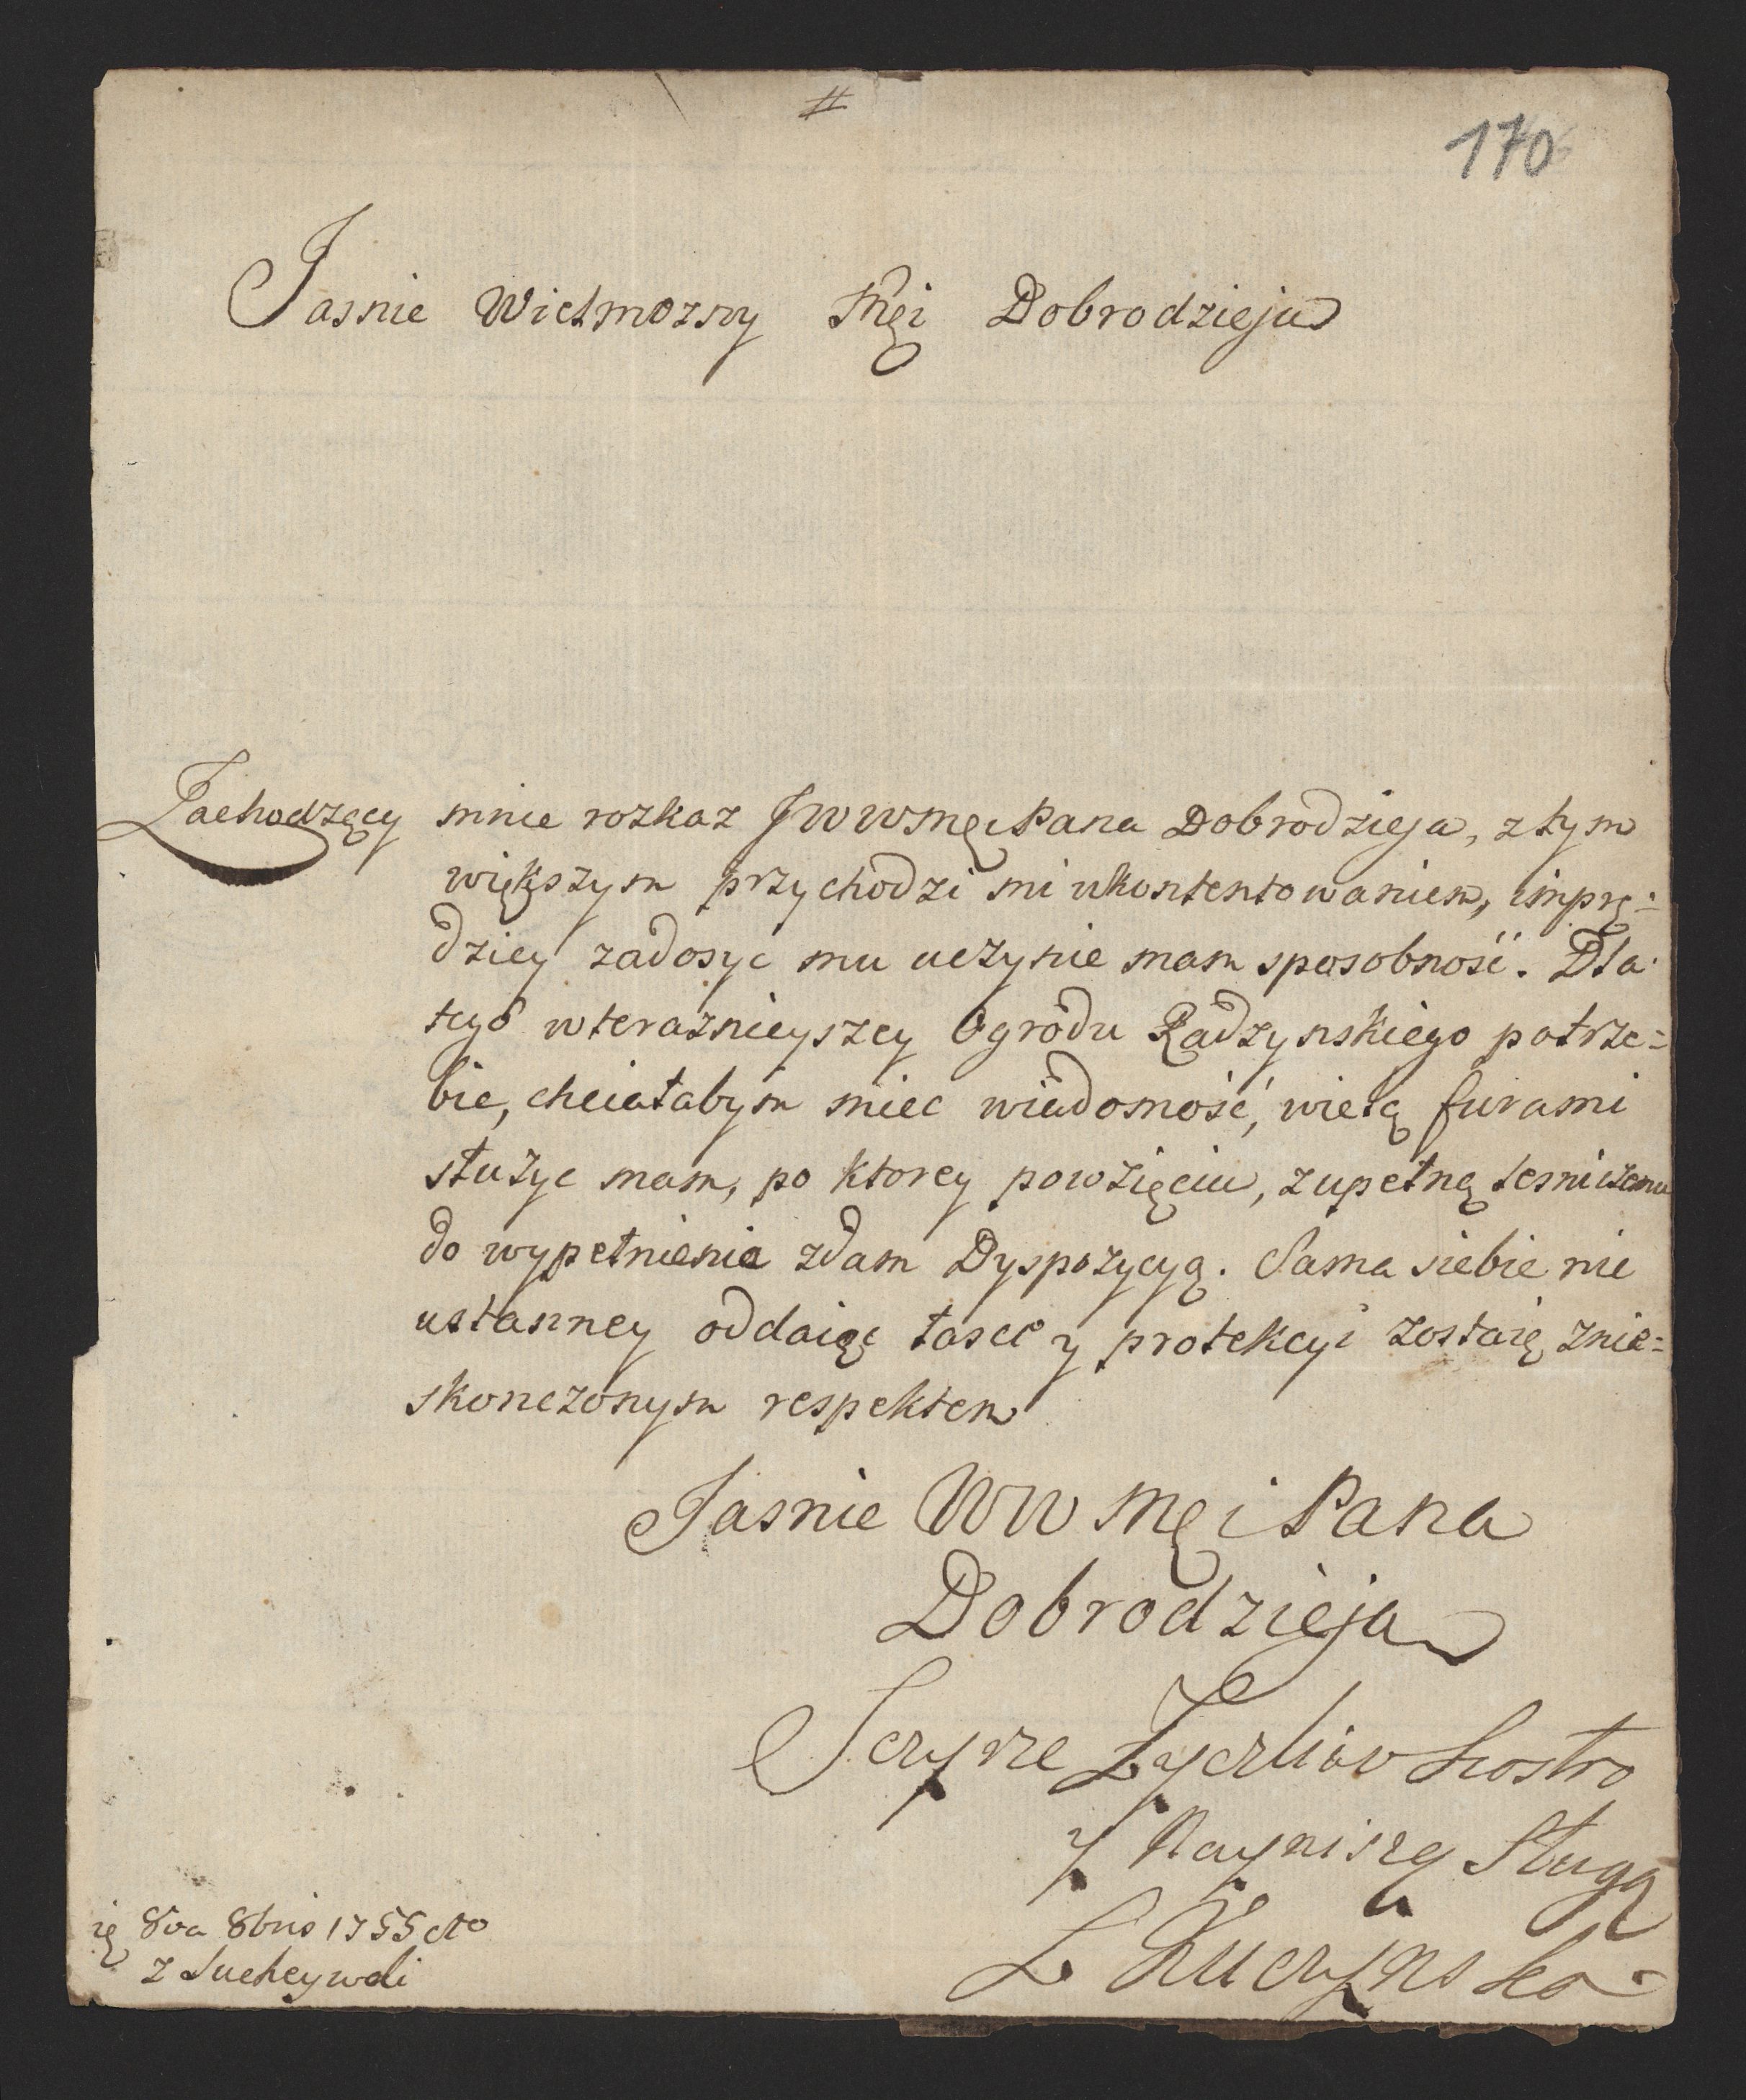 #
170
Jasnie Wielmozny Męi Dobrodzieju
Zachodzący mnie rozkaz JWWMęi Pana Dobrodzieja, z tym
większym przychodzi mi ukontentowaniem, im prę=
dziey zadosyc mu uczynic mam sposobność. Dla
tego w teraznieyszey Ogrodu Radzynskiego potrze=
bie, chciałabym miec wiadomość, wielą furami
służyc mam, po ktorey powzięciu, zupełną lesniczemu
do wypełnienia zdam Dyspozycyą. Sama siebie nie
ustanney oddaiąc łasce y protekcyi zostaię z nie=
skonczonym respektem
Jasnie WW Męi Pana
Dobrodzieja
Sczyrze Zyczliwo Siostro
y Nayniszą Sługą
Kuczynska
8va 8bris 1755 Ao
z Suchey woli